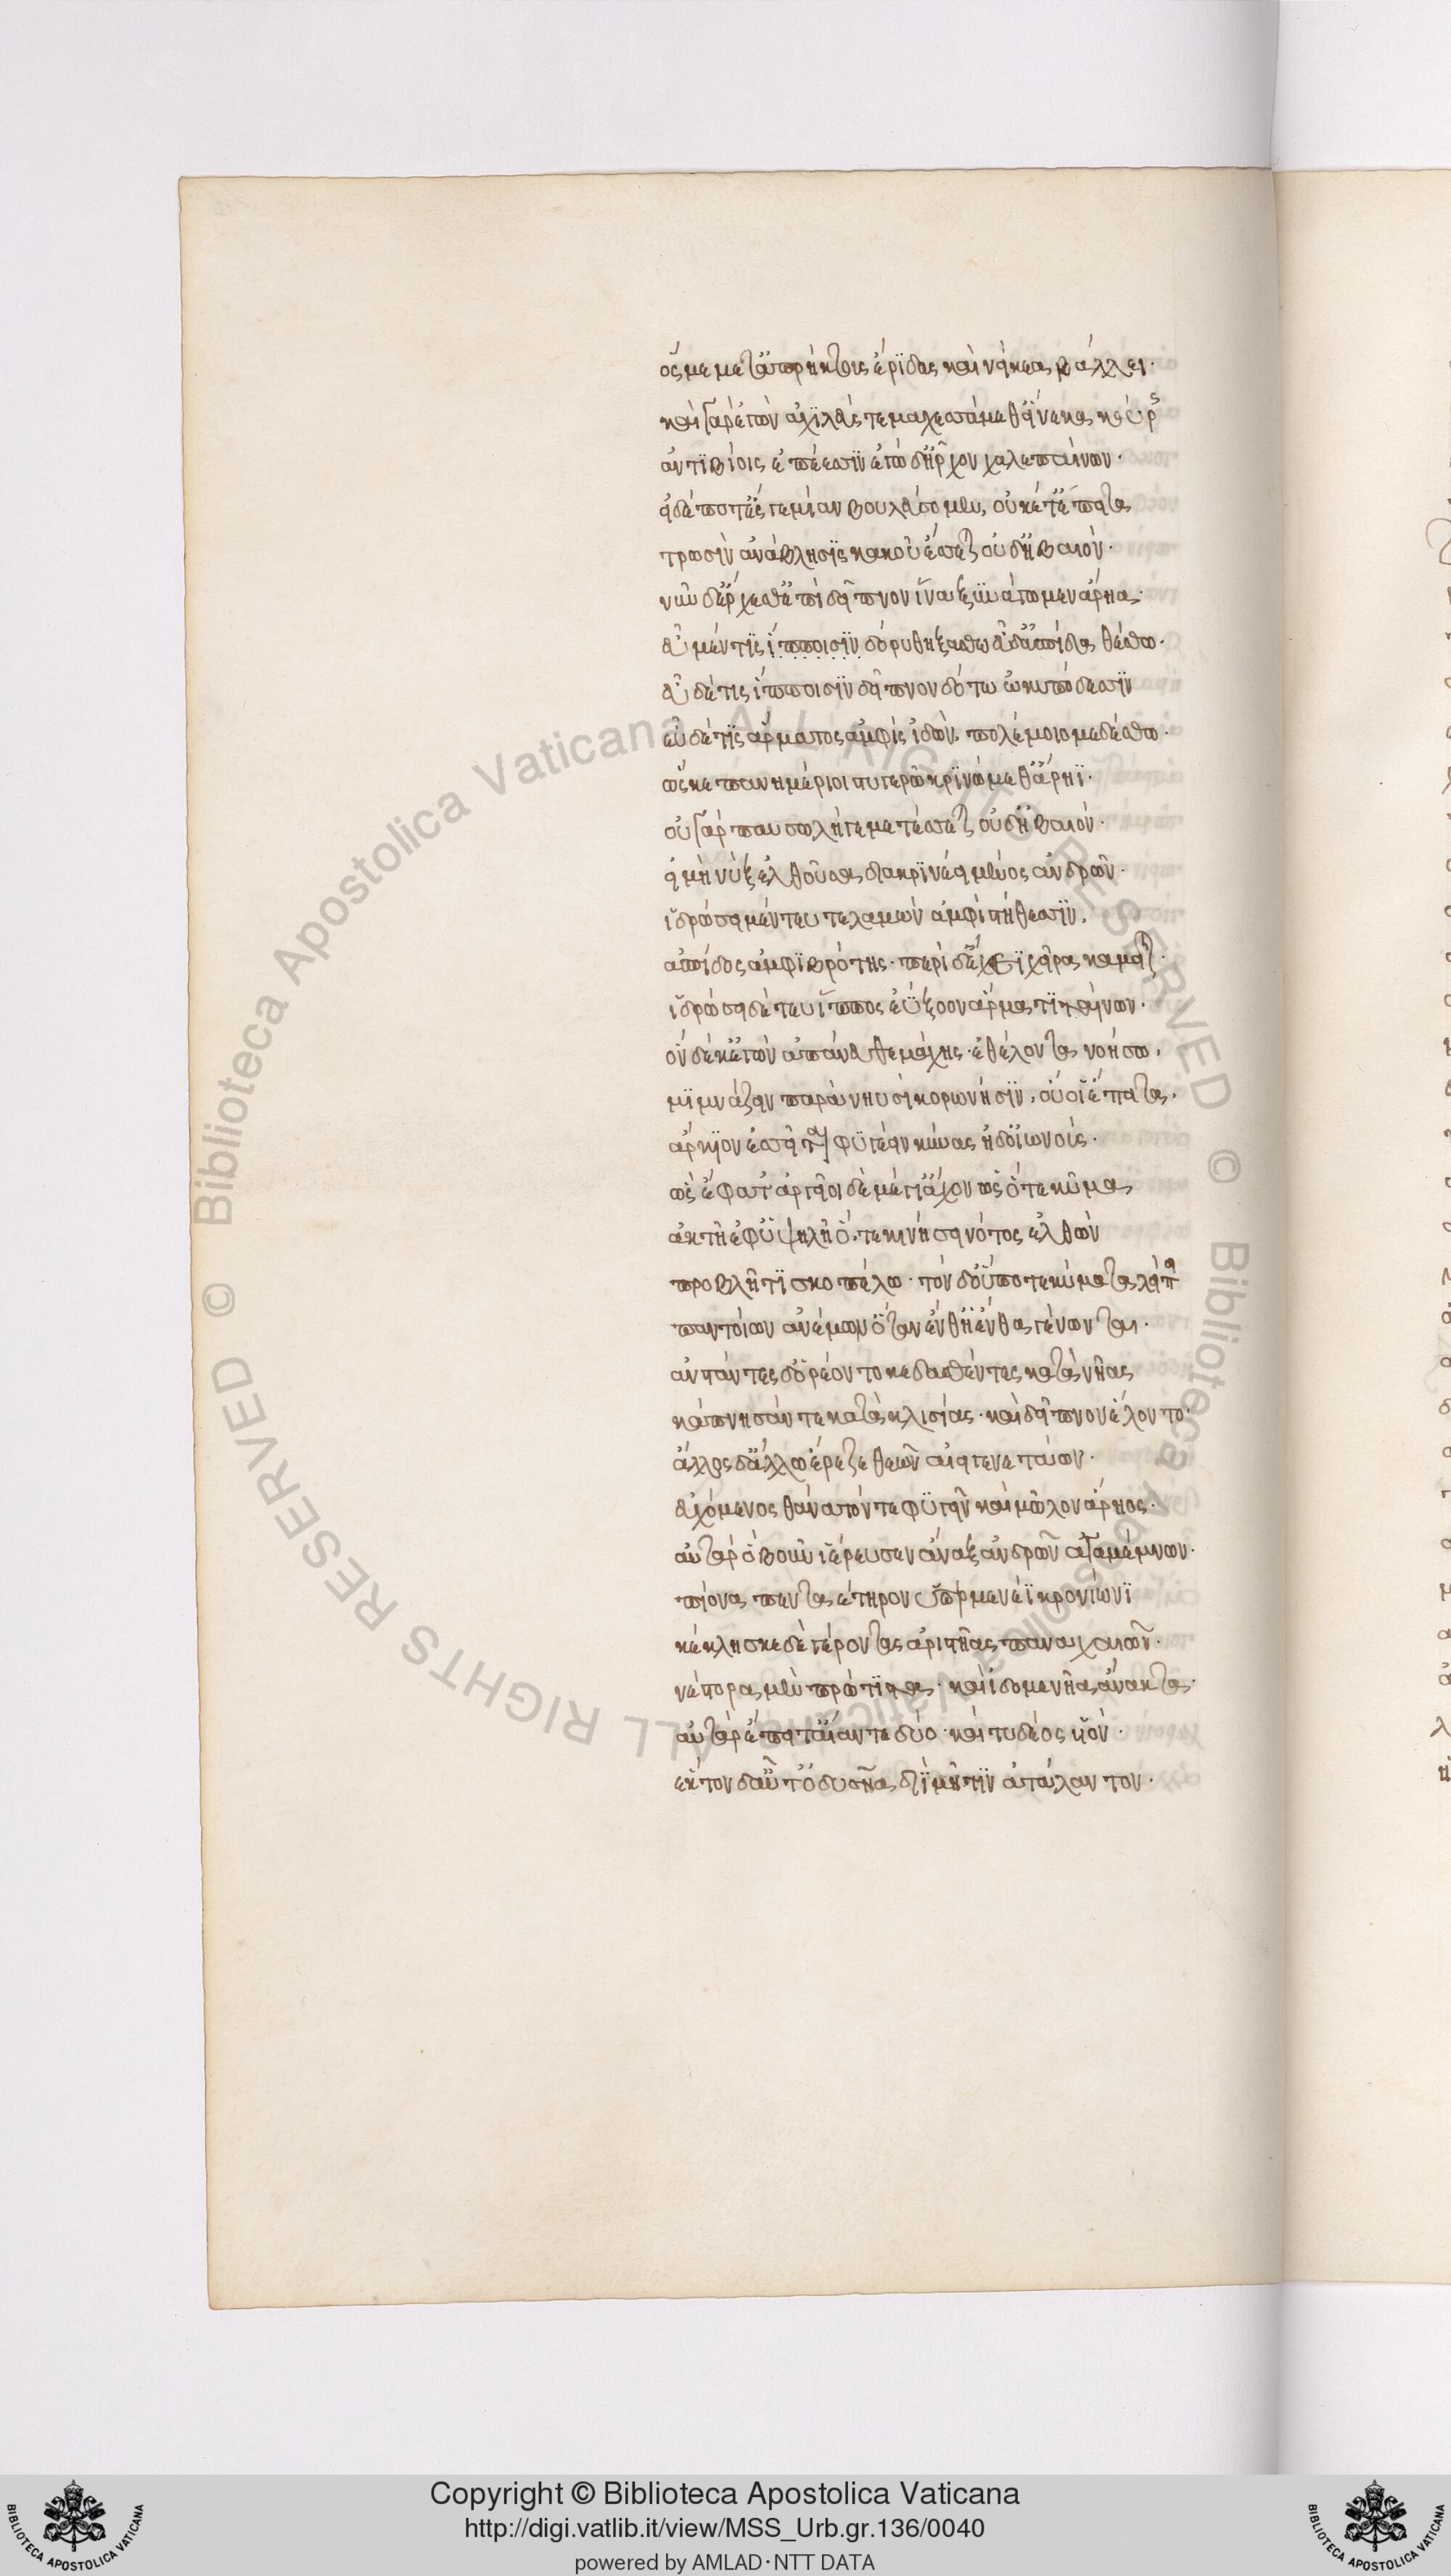 ὅς με μετ' ἀπρήκτους ἔριδας καὶ νείκεα βάλλει.
καὶ γὰρ ἐγὼν ἀχιλεύς τε μαχεσσάμεθ' εἵνεκα κούρης
ἀντιβίοις ἐπέεσσιν ἐγὼ δ' ἦρχον χαλεπαίνων.
εἰ δέ ποτ' ἔς γε μίαν βουλεύσομεν, οὐκέτ' ἔπειτα
τρωσὶν ἀνάβλησις κακοῦ ἔσσεται οὐδ' ἠβαιόν.
νῦν δ' ἔρχεσθ' ἐπὶ δεῖπνον ἵνα ξυνάγωμεν ἄρηα.
εὖ μέν τις ἵπποισιν δόρυ θηξάσθω εὖ δ' ἀσπίδα θέσθω.
εὖ δέ τις ἵπποισιν δεῖπνον δότω ὠκυπόδεσσιν
εὖ δέ τις ἅρματος ἀμφὶς ἰδὼν, πολέμοιο μεδέσθω.
ὥς κε πανημέριοι στυγερῶ κρινώμεθ' ἄρηϊ.
οὐ γὰρ παυσωλή γε μετέσσεται οὐδ' ἠβαιόν.
εἰ μὴ νὺξ ἐλθοῦσα διακρινέει μένος ἀνδρῶν.
ἱδρώσει μέν τευ τελαμὼν ἀμφὶ στήθεσσιν.
ἀσπίδος ἀμφιβρότης. περὶ δ' ἔγχεϊ χεῖρα καμεῖται.
ἱδρώσει δέ τευ ἵππος ἐΰξοον ἅρμα τιταίνων.
ὃν δέ κ' ἐγὼν ἀπάνευθε μάχης. ἐθέλοντα νοήσω.
μιμνάζειν παρὰ νηυσὶ κορωνῆσιν, οὔ οἱ ἔπειτα.
ἄρκιον ἐσσεῖται φυγέειν κύνας ἠδ' οἰωνούς.
ὣς ἔφατ' ἀργεῖοι δὲ μέγ' ἴαχον ὡς ὅτε κῦμα
ἀκτῆ ἐφ' ὑψηλῆ ὅ,τε κινήσει νότος ἐλθὼν
προβλῆτι σκοπέλω. τὸν δ' οὔποτε κύματα λείπει
παντοίων ἀνέμων ὅταν ἔνθ' ἢ ἔνθα γένωνται.
ἀνστάντες δ' ὀρέοντο κεδασθέντες κατὰ νῆας
κάπνησάν τε κατὰ κλισίας. καὶ δεῖπνον ἕλοντο.
ἄλλος δ' ἄλλω ἔρεζε θεῶν αἰειγενετάων.
εὐχόμενος θάνατόν τε φυγεῖν καὶ μῶλον ἄρηος.
αὐτὰρ ὁ βοῦν ἱέρευσεν ἄναξ ἀνδρῶν ἀγαμέμνων.
πίονα πενταέτηρον ὑπερμενέϊ κρονίωνι
κέκλησκε δὲ γέροντας ἀριστῆας παναχαιῶν.
νέστορα μὲν πρώτιστα. καὶ ἰδομενῆα ἄνακτα.
αὐτὰρ ἔπειτ' αἴαντε δύο. καὶ τυδέος υἱόν.
ἕκτον δ' αὖτ' ὀδυσῆα διῒ μῆτιν ἀτάλαντον.
© Biblioteca Apostolica Vaticana ALL RIGHTS RESERVED © Biblioteca Apostolica Vaticana ALL RIGHTS RESERVED
Copyright © Biblioteca Apostolica Vaticana
http://digi.vatlib.it/view/MSS_Urb.gr.136/0040
powered by AMLAD·NTT DATA
BIBLIOTECA APOSTOLICA VATICANA
BIBLIOTECA APOSTOLICA VATICANA